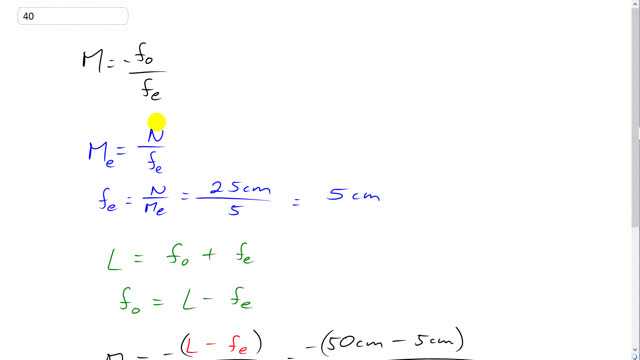 40
M = -f₀/fₑ
Mₑ = N/fₑ
fₑ = N/Mₑ = 25cm/5 = 5cm
L = f₀ + fₑ
f₀ = L - fₑ
M = -(L - fₑ) = -(50cm - 5cm)